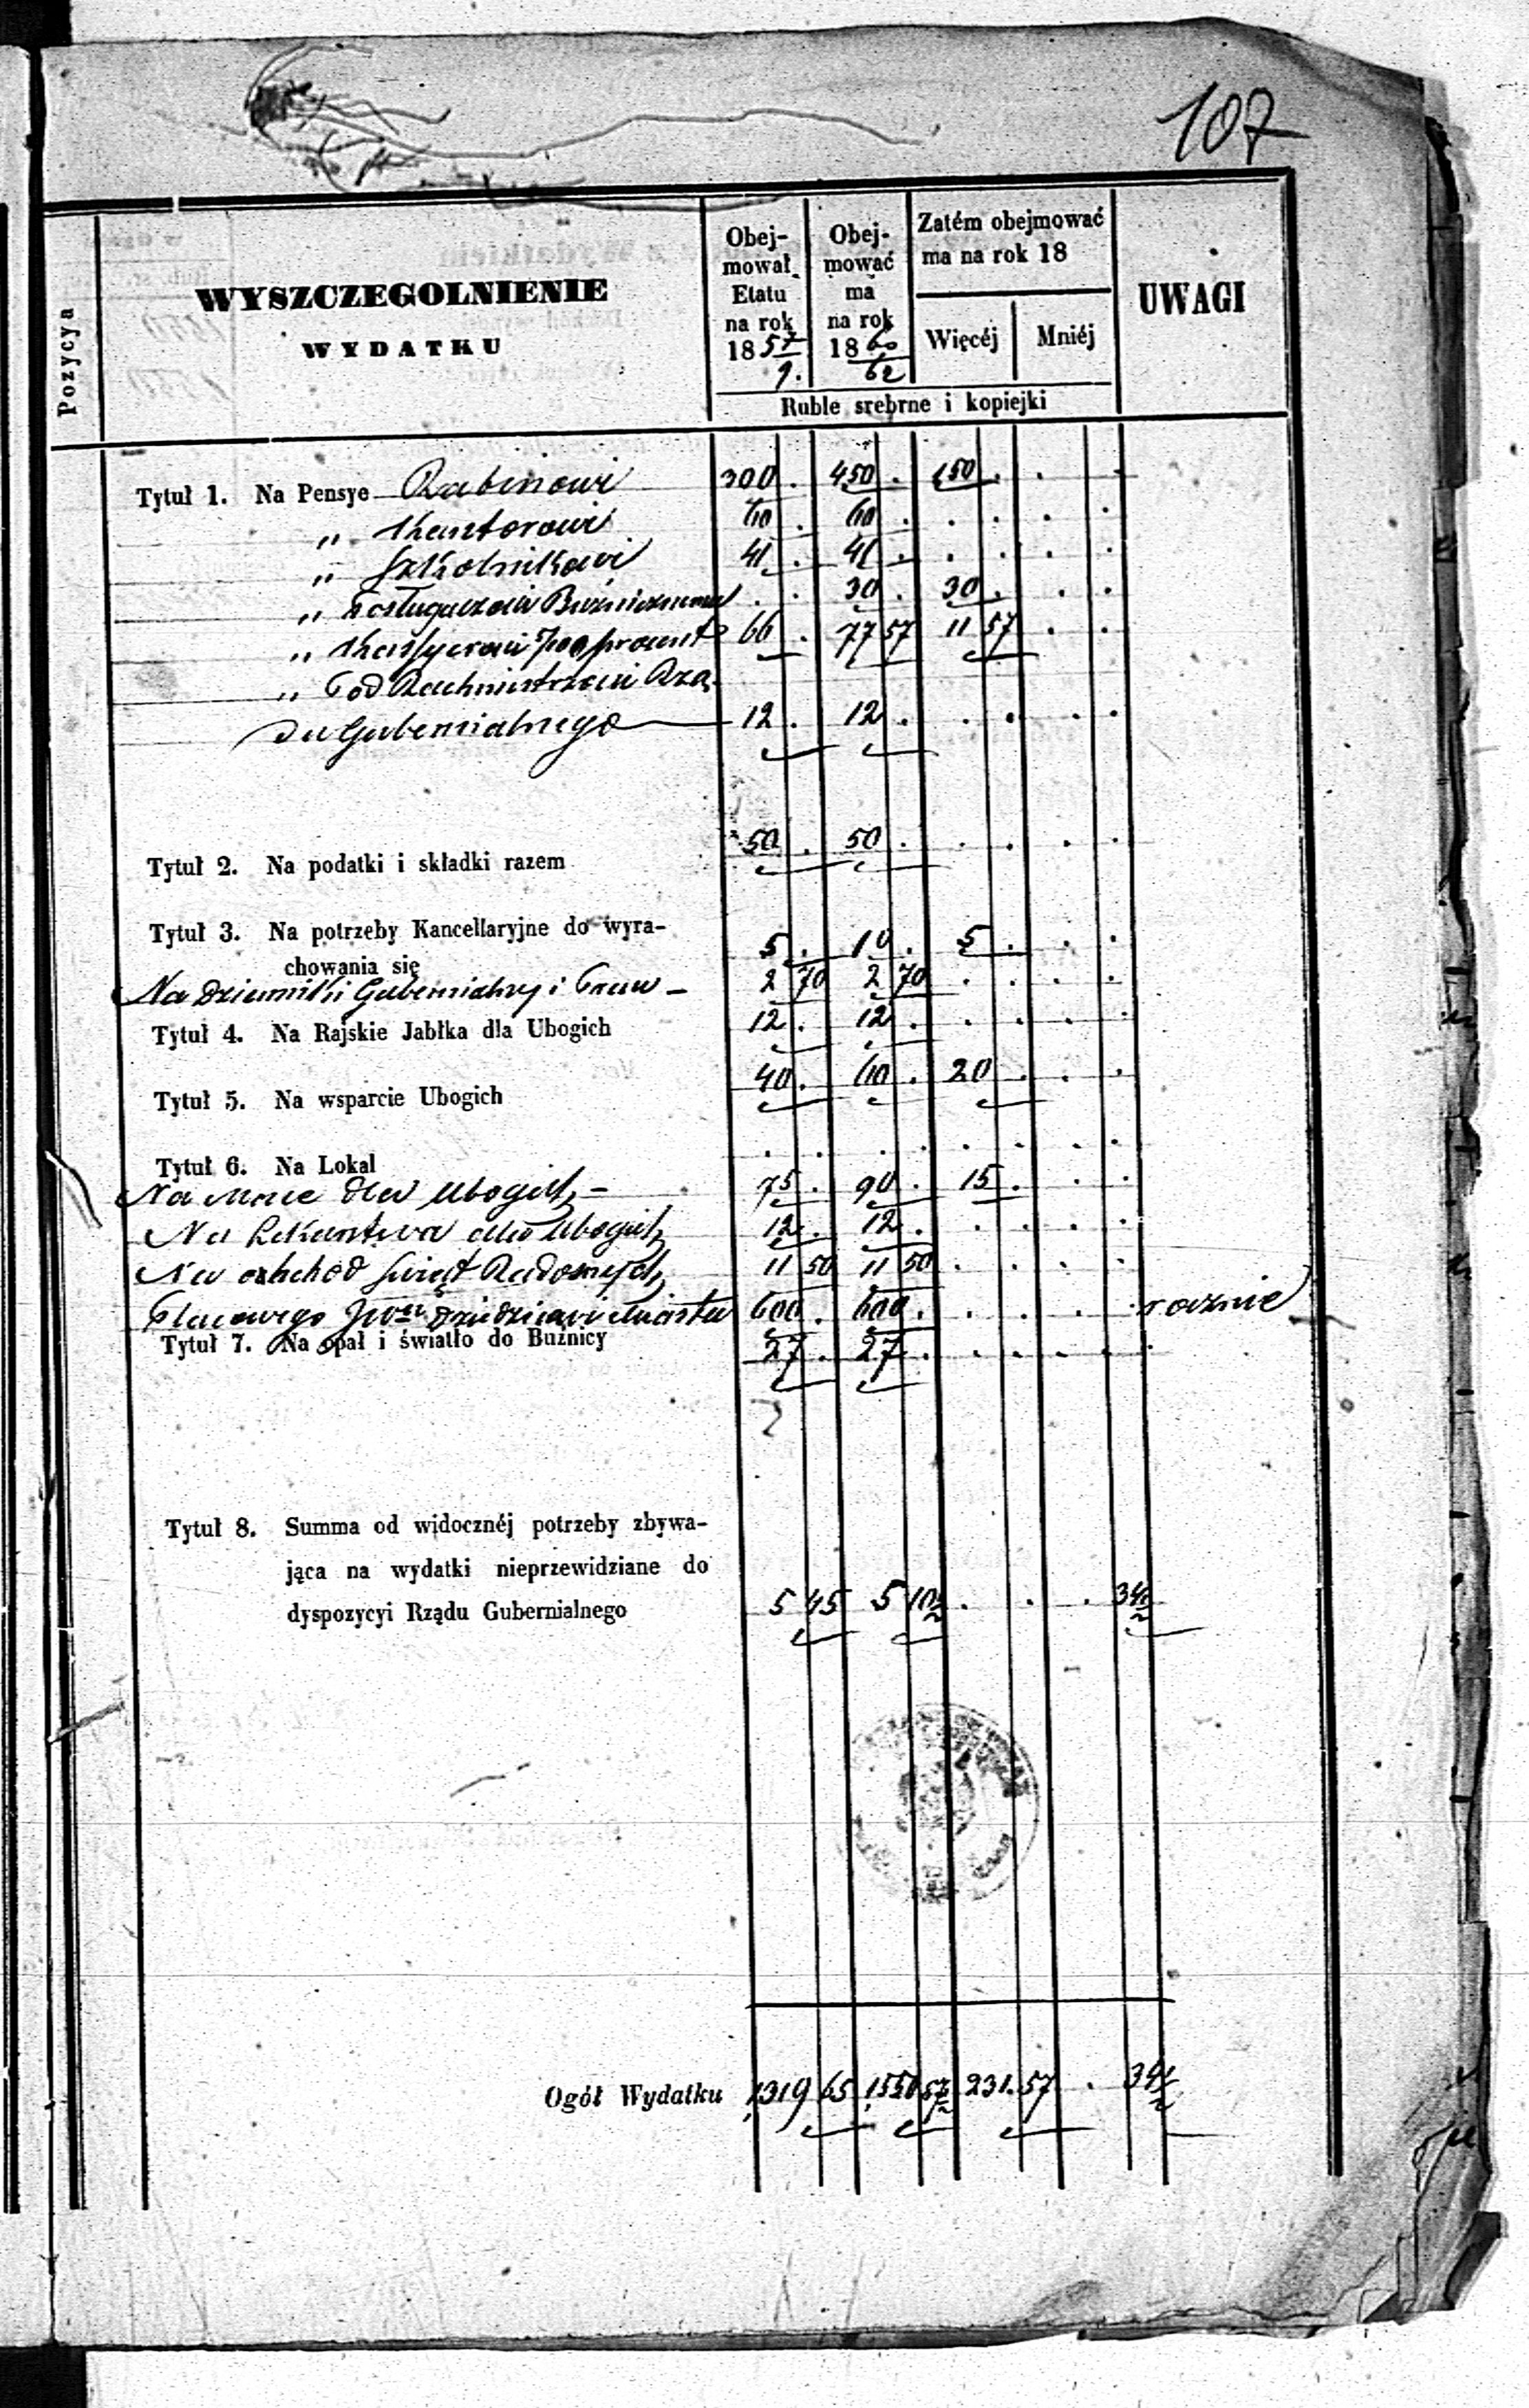 107
Pozycya
WYSZCZEGOLNIENIE
WYDATKU
Obejmował Etatu na rok 1857/9.
Obejmować ma na rok 1860/62
Zatém obejmować ma na rok 18
Więcéj
Mniéj
UWAGI
Ruble srebrne i kopiejki
Tytuł 1. Na Pensye Rabinowi 300 . 450 . 150 . . .
„ Kantorowi 60 . 60 . . . . .
„ Szkolnikowi 41 . 41 . . . . .
„ Posługaczowi Bużniczemu . . 30 . 30 . . .
„ Kassyerowi 5/100 procent 66 . 77 57 11 57 . .
„ Pod Rachmistrzowi Rzą
du Gubernialnego 12 . 12 . . . . .
Tytuł 2. Na podatki i składki razem 50 . 50 . . . . .
Tytuł 3. Na potrzeby Kancellaryjne do wyra-
chowania się 5 . 10 . 5 . . .
Na Dzienniki Gubernialny i 2 70 2 70 . . . .
Tytuł 4. Na Rajskie Jabłka dla Ubogich 12 . 12 . . . . .
Tytuł 5. Na wsparcie Ubogich 40 . 60 . 20 . . .
Tytuł 6. Na Lokal . . . . . . . .
Na Mace dla Ubogich 75 . 90 . 15 . . .
Na Lekarstwa dla Ubogich 12 . 12 . . . . .
Na obchód Świąt Radosnych 11 50 11 50 . . . .
Placowego Dziedzicowi Miasta 600 . 600 . . . . . rocznie
Tytuł 7. Na opał i światło do Bużnicy 27 . 27 . . . . .
Tytuł 8. Summa od widocznéj potrzeby zbywa-
jąca na wydatki nieprzewidziane do
dyspozycyi Rządu Gubernialnego 5 45 5 10½ . . . 34½
Ogół Wydatku 1319 65 1550 87½ 231 57 . 34½